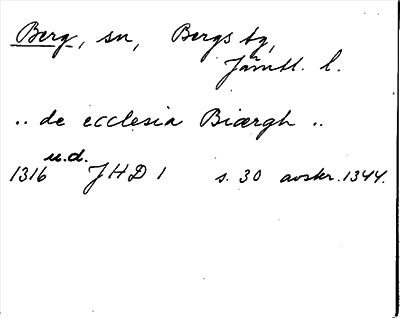 Berg, sn, Bergs tg,
Jämtl. l.
.. de ecclesia Biærgh ..
1316 u.d. JHD 1 s. 30 avskr. 1344.